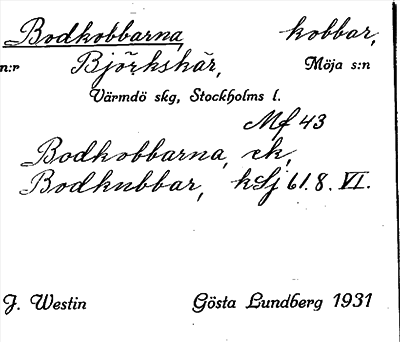 Bodkobbarna, kobbar,
n:r Björkskär, Möja s:n
Värmdö skg, Stockholms l.
Mf 43
Bodkobbarna, ek,
Bodknubbar, kSj 61.8. VI.
J. Westin Gösta Lundberg 1931